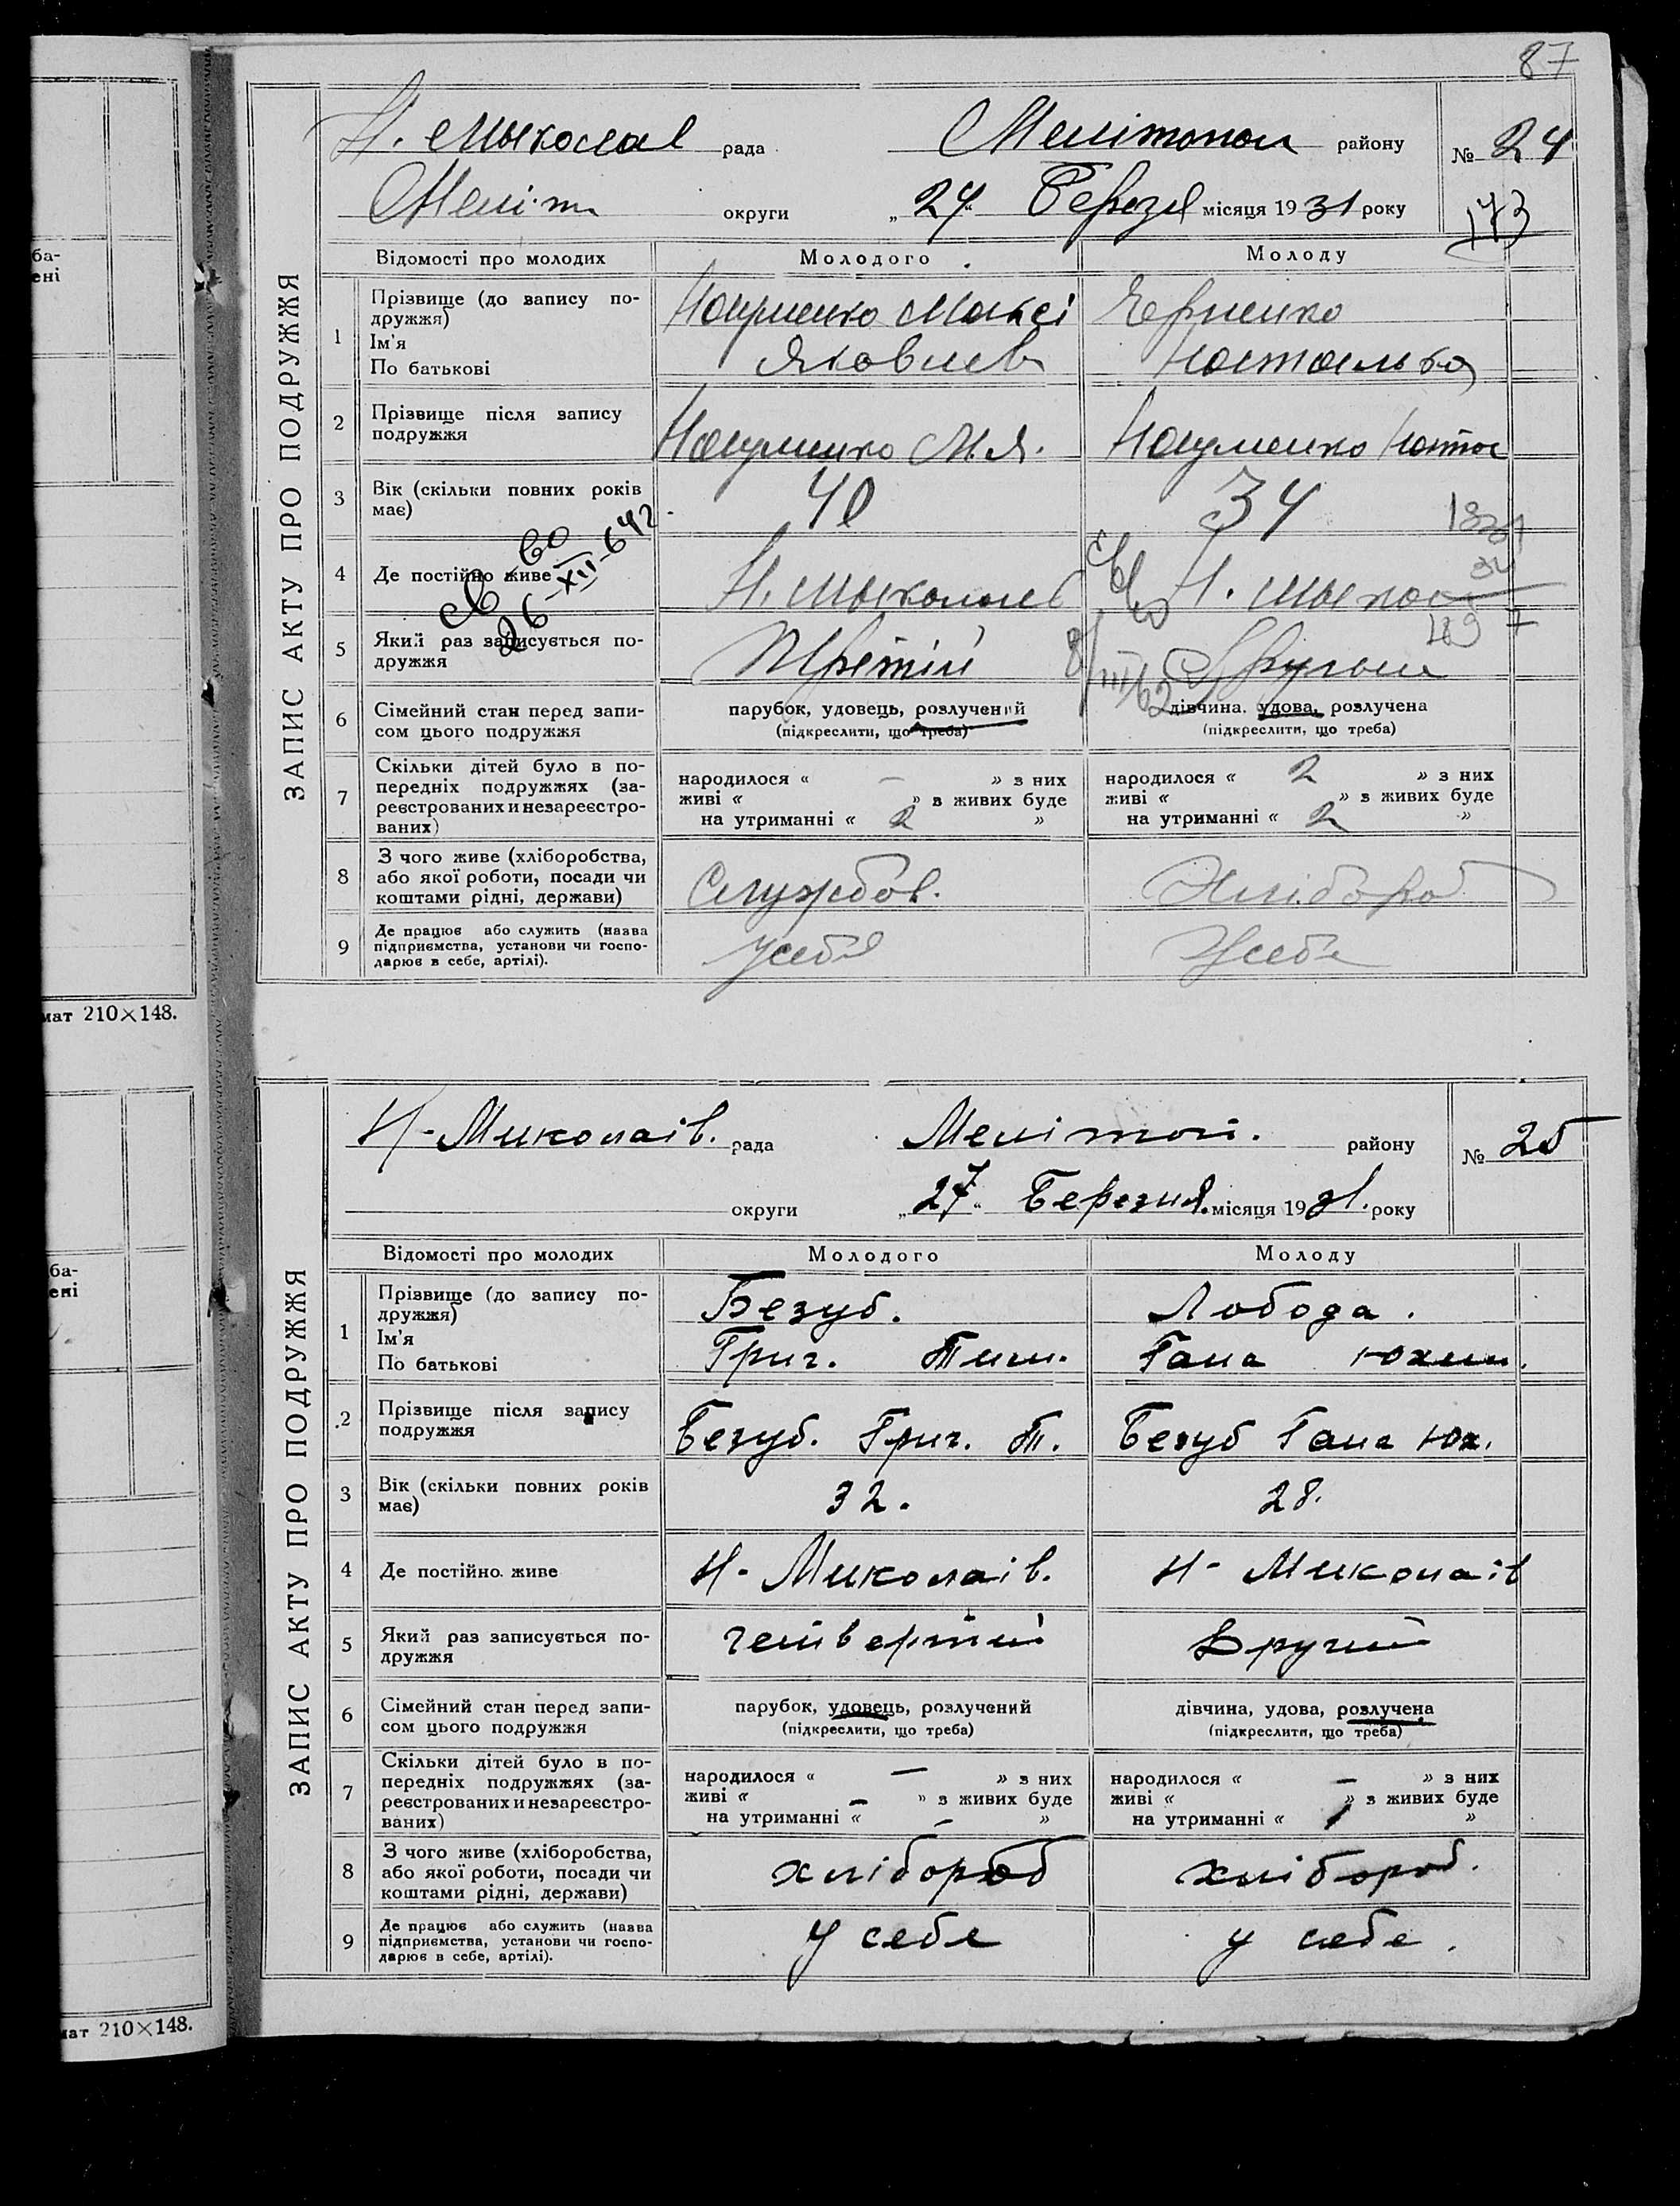 87
Н. Мыколаев рада Мелітопол району № 24
Меліт. округи „24“ Березня місяця 1931 року 173
ЗАПИС АКТУ ПРО ПОДРУЖЖЯ
Відомості про молодих Молодого Молоду
1 Прізвище (до запису по-
дружжя)
Ім'я
По батькові
Науменко Максі
Яковлев
Настасья
2 Прізвище після запису
подружжя
Науменко М.Я.
Науменко Наст
3 Вік (скільки повних років
має)
40
34
4 Де постійно живе
Св-во
26-XII-642
Н. Мыколаев
Н. Мыко
Св-во
8/III 62
5 Який раз записується по-
дружжя
Третій
Другой
6 Сімейний стан перед запи-
сом цього подружжя
парубок, удовець, розлучений
(підкреслити, що треба)
дівчина, удова, розлучена
(підкреслити, що треба)
7 Скільки дітей було в по-
передніх подружжях (за-
реєстрованих и незареєстро-
ваних)
народилося « — » з них
живі « » з живих буде
на утриманні « 2 »
народилося « 2 » з них
живі « » з живих буде
на утриманні « 2 »
8 З чого живе (хліборобства,
або якої роботи, посади чи
коштами рідні, держави)
Службов.
Хлібороб
9 Де працює або служить (назва
підприємства, установи чи госпо-
дарює в себе, артілі).
У себя
У себя
Н-Миколаїв. рада Мелітоп. району № 25
округи „27“ Березня місяця 1931. року
ЗАПИС АКТУ ПРО ПОДРУЖЖЯ
Відомості про молодих Молодого Молоду
1 Прізвище (до запису по-
дружжя)
Ім'я
По батькові
Безуб.
Григ. Тим.
Лобода.
Гана Юхим.
2 Прізвище після запису
подружжя
Безуб. Григ. Т.
Безуб Гана Юх.
3 Вік (скільки повних років
має)
32.
28.
4 Де постійно живе
Н-Миколаів.
Н-Миколаів
5 Який раз записується по-
дружжя
четвертий
Другий
6 Сімейний стан перед запи-
сом цього подружжя
парубок, удовець, розлучений
(підкреслити, що треба)
дівчина, удова, розлучена
(підкреслити, що треба)
7 Скільки дітей було в по-
передніх подружжях (за-
реєстрованих и незареєстро-
ваних)
народилося « — » з них
живі « — » з живих буде
на утриманні « — »
народилося « — » з них
живі « » з живих буде
на утриманні « »
8 З чого живе (хліборобства,
або якої роботи, посади чи
коштами рідні, держави)
хлібороб
хлібороб.
9 Де працює або служить (назва
підприємства, установи чи госпо-
дарює в себе, артілі).
У себе
у себе.
ба-
ені
мат 210×148.
ба-
ені
мат 210×148.